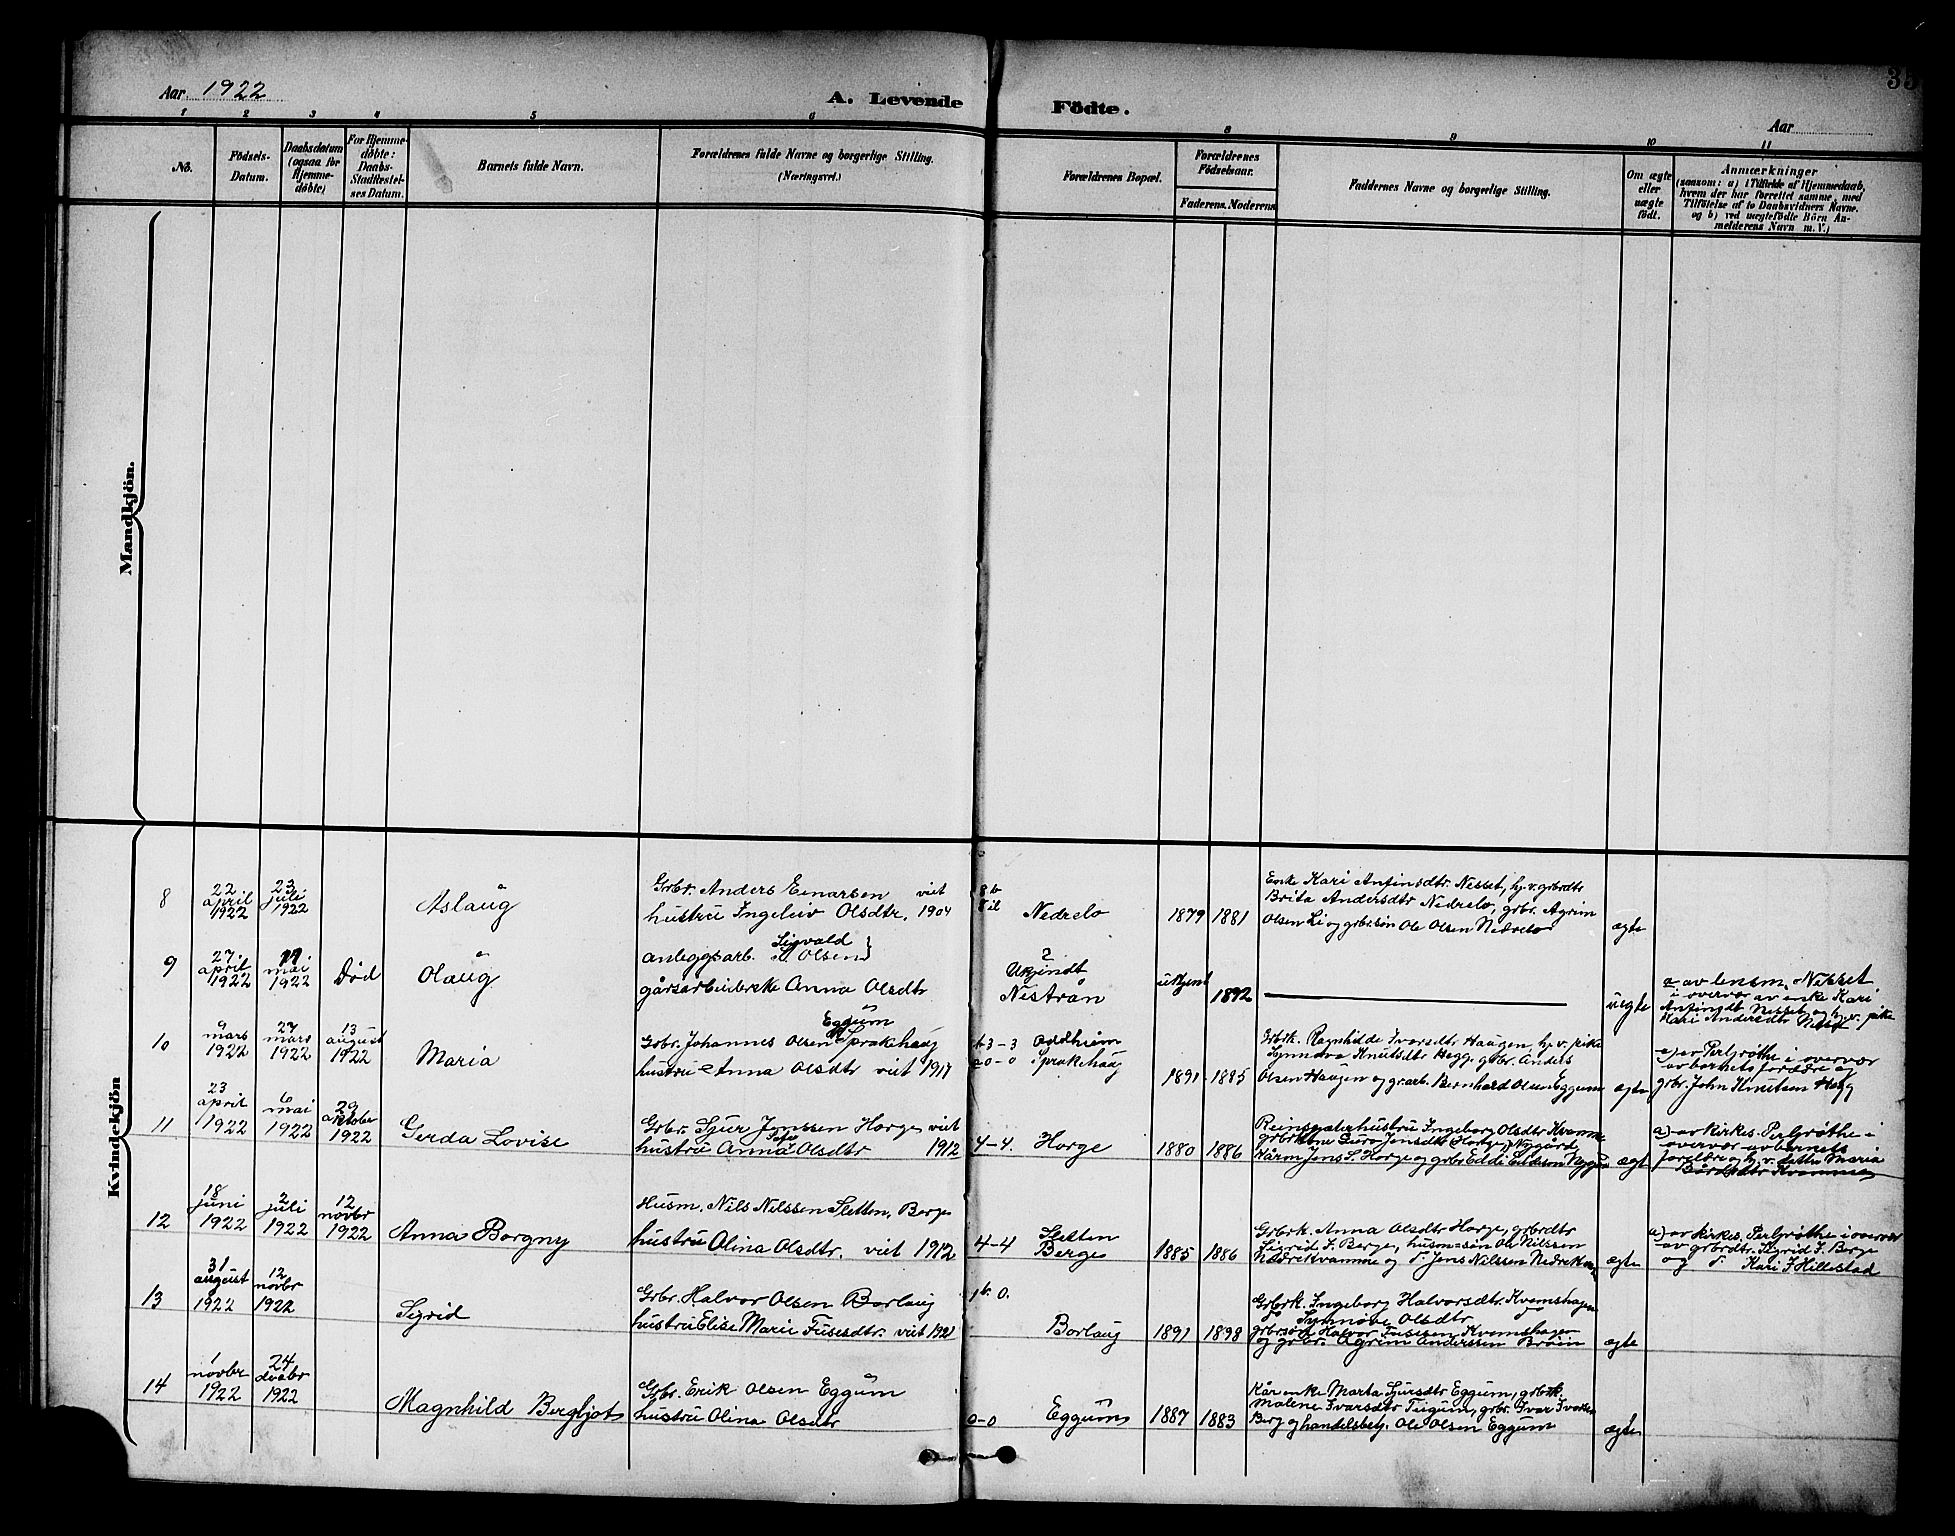 Aar 1922
A. Levende Födte.
Aar
35
1 2 3 4 5 6 8 9 10 11
No.
Födsels-Datum.
Daabsdatum (ogsaa for Hjemme-döbte)
For Hjemme-döbte: Daabs-Stadfæstelses Datum.
Barnets fulde Navn.
Forældrenes fulde Navne og borgerlige Stilling.
(Næringsvei.)
Forældrenes Bopæl.
Forældrenes Födselsaar.
Faderens. Moderens
Faddernes Navne og borgerlige Stilling.
Om ægte eller uægte födt.
Anmærkninger
(saasom: a) i Tilfælde af Hjemmedaab,
hvem der har forrettet samme, med
Tilföielse af to Daabsvidners Navne.
og b) ved uægtefödte Börn An-
melderens Navn m. V.)
Mandkjön.
Kvindekjön
8
22 april 1922
23 juli 1922
Aslaug
Grbr. Anders Einarsen viet
hustru Ingeleiv Olsdtr. 1904
Nedrelo
1879 1881
Enke Kari Anfinsdtr. Nesset, hj. v. grbrdtr
Brita Andersdtr Nedrelo, grbr. Agrim
Olsen Li og grbr.søn Ole Olsen Nedrelo
ægte
9
27 april 1922
mai 1922
Død
Olaug
anleggsarb. Sigvald Olsen
gårsarbeiderske Anna Olsdtr
?
Ukjendt
Nestrån
ukjent
1892
uegte
a av lensm. Nesset
i overvær av enke Kari
Anfinsdt. Nesset og hj. v. pike
Kari Andersdtr Nesse
10
9 mars 1922
27 mars 1922
13 august 1922
Maria
Grbr. Johannes Olsen Eggum Sprakehaug
hustru Anna Olsdtr viet 1917
3-3
0-0
Oddheim
Sprakehaug
1891 1885
Grbrk. Ragnhilde Ivarsdtr Haugen, hj. v. pike
Synnøva Knutsdtr Hegg, grbr. Anders
Olsen Haugen og grarb. Bernhard Olsen Eggum
ægte
a) av Perlgrøthe i overvær
av barnets foreldre og
grbr. John Knutsen Hegg
11
23 april 1922
6 mai 1922
29 oktober 1922
Gerda Lovise
Grbr. Sjur Jenssen Horge viet
hustru Anna Olsdtr 1912
4-4.
Horge
1880 1886
hustru Ingeborg Olsdtr Kvamme
Guro Jensdtr Horge, Nygård
Jens S. Horge og grbr Eddi
ægt
a) av kirkes. Perlgrøthe i
overvær av barnets
foreldre og hj. v. Maria
Bårdsdtr Kvamme
12
18 juni 1922
2 juli 1922
12 novbr 1922
Anna Borgny
Husm. Nils Nilssen Sletten, Berge
hustru Olina Olsdtr. viet 1912
4-4
Sletten
Berge
1885 1886
Grbrk. Anna Olsdtr Horge, grbrdtr
Sigrid J. Berge, husm-søn Ole Nilssen
Nedrekvamme og Jens Nilssen Nedrekva
ægte
a) av kirkes. Perlgrøthe i overvær
av grbrdtr. Sigrid J. Berge
og Kari J Hillestad
13
31 august 1922
12 novbr 1922
Sigrid
Grbr. Halvor Olsen Borlaug
hustru Elise Marie Fusesdtr. viet 1921
Borlaug
1891 1898
Grbrk. Ingeborg Halvorsdtr. Kvamshagen
Synnøve Olsdtr
grbrsøn Halvor Fusesen Kvamshagen
og grbr. Agrim Anderssen Bråin
ægte
14
1 novbr 1922
24 1922
Magnhild Bergljot
Grbr. Erik Olsen Eggum
hustru Olina Olsdtr
0-0
Eggum
1887 1883
Kårenke Marta Sjursdtr Eggum, grbrk.
Malene Ivarsdtr grbr. Ivar
Berg og handelsbetj. Ole Olsen Eggum
ægte